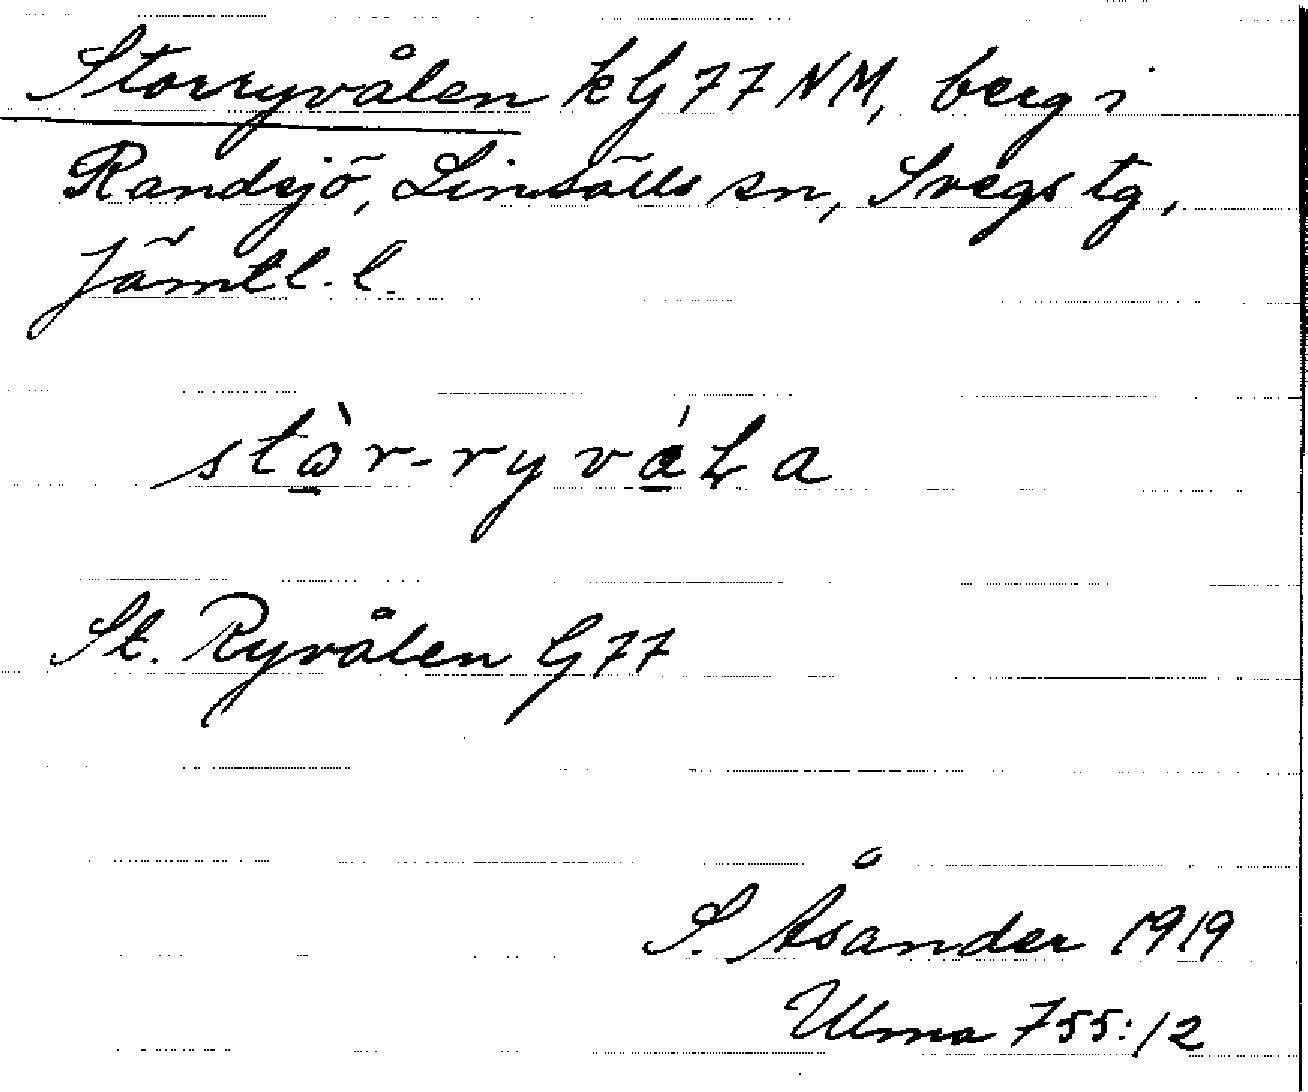 Storryvålen kG77NM, berg i
Randsjö, Linsälls sn, Svegs tg,
Jämtl. l.
stòr-ryváLa
St. Ryvålen G77
S. Åsander 1919
Ulma 755:12